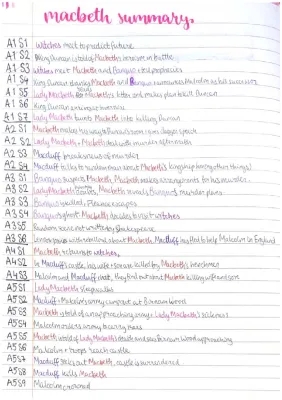 macbeth summary.
A1 S1 Witches meet to predict future
A1 S2 King Duncan is told of Macbeth's heroism in battle
A1 S3 Witches meet Macbeth and Banquo + tell prophecies
A1 S4 King Duncan Macbeth and Banquo names Malcolm as his successor
A1 S5 Lady Macbeth reads Macbeth's letter and makes plan to kill Duncan
A1 S6 King Duncan arrives at Inverness
A1 S7 Lady Macbeth taunts Macbeth into killing Duncan
A2 S1 Macbeth makes his way to Duncan's room + sees dagger
A2 S2 Lady Macbeth + Macbeth deal with murder aftermath
A2 S3 Macduff breaks news of murder
A2 S4 Macduff talks to about Macbeth's kingship (among other things)
A3 S1 Banquo suspects Macbeth, Macbeth makes arrangements for his murder
A3 S2 Lady Macbeth doubts, Macbeth reveals Banquo's murder plans
A3 S3 Banquo killed, Fleance escapes
A3 S4 Banquo's ghost, Macbeth decides to visit witches
A3 S5 Random scene not written by Shakespeare
A3 S6 Lennox about Macbeth. Macduff has fled to help Malcolm in England
A4 S1 Macbeth revisits witches
A4 S2 In Macduff's castle, his wife + son are killed by Macbeth's henchmen
A4 S3 Malcolm and Macduff meet, they find out about Macbeth killing wife and son
A5 S1 Lady Macbeth sleepwalks
A5 S2 Macduff + Malcolm's army camp out at Birnam Wood
A5 S3 Macbeth is told of an approaching army + Lady Macbeth's sickness
A5 S4 Malcolm orders army to carry trees
A5 S5 Macbeth is told of Lady Macbeth's death and sees Birnam Wood approaching
A5 S6 Malcolm + troops reach castle
A5 S7 Macduff seeks out Macbeth, castle is surrendered
A5 S8 Macduff kills Macbeth
A5 S9 Malcolm crowned